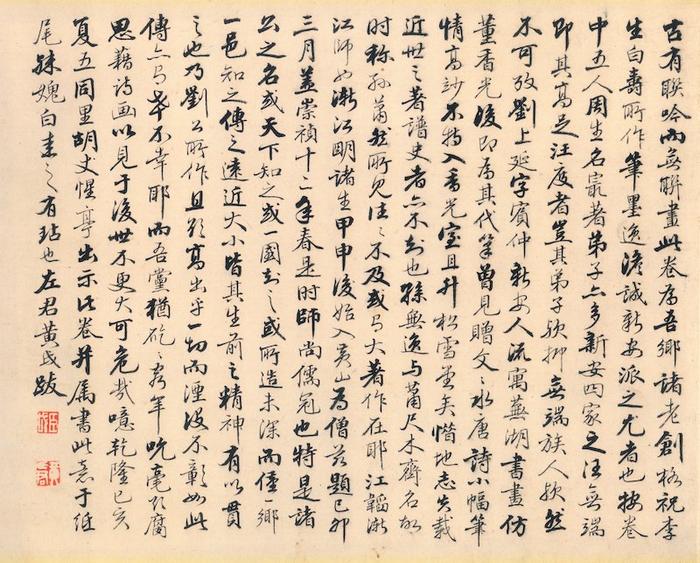 古有聯吟而無聯畫此卷為吾鄉諸老創格祝李
生白壽所作筆墨逸澹誠新安派之尤者也按卷
中五人周生名最著弟子亦多新安四家之汪無端
即其高足汪度者豈其弟子欤抑無端族人欤然
不可攷劉上延字賓仲新安人流寓蕪湖書畫仿
董香光後即為其代筆曾見贈文〻水唐詩小幅筆
情高妙不特入香光室且升松雪堂矣惜地志失載
近世之著譜史者亦不知也孫無逸與蕭尺木齊名故
时称孫蕭然所見往〻不及或有大著作在耶江韜漸
江師也漸江明諸生甲申後始入黄山為僧茲題己卯
三月蓋崇禎十二年春是时師尚儒冠也特是諸
公之名或天下知之或一國知之或所造未深而僅一鄉
一邑知之傳之遠近大小皆其生前之精神有以貫
之也乃劉公所作且能高出乎一切而湮没不彰如此
傳亦有幸不幸耶而吾黨猶矻〻窮年吮毫欲腐
思藉诗画以見于後世不更大可危哉噫乾隆己亥
夏五同里胡丈惺亭出示此卷并属書此意于纸
尾殊媿白圭之有玷也左君黄戉跋